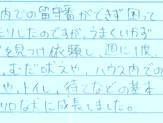 内での留守番ができず困って
たりしたのですが、うまくいかず
を見つけ依頼し、週に1度
、むだ吠えや、ハウス内での
や、トイレ、待てなどの基本
リロな犬に成長しました。